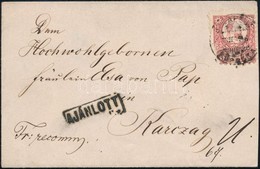 Dem
Hochwohlgebornen
fräulein Elsa von Pap
in
AJÁNLOTT
Karczag
Fr: recomm